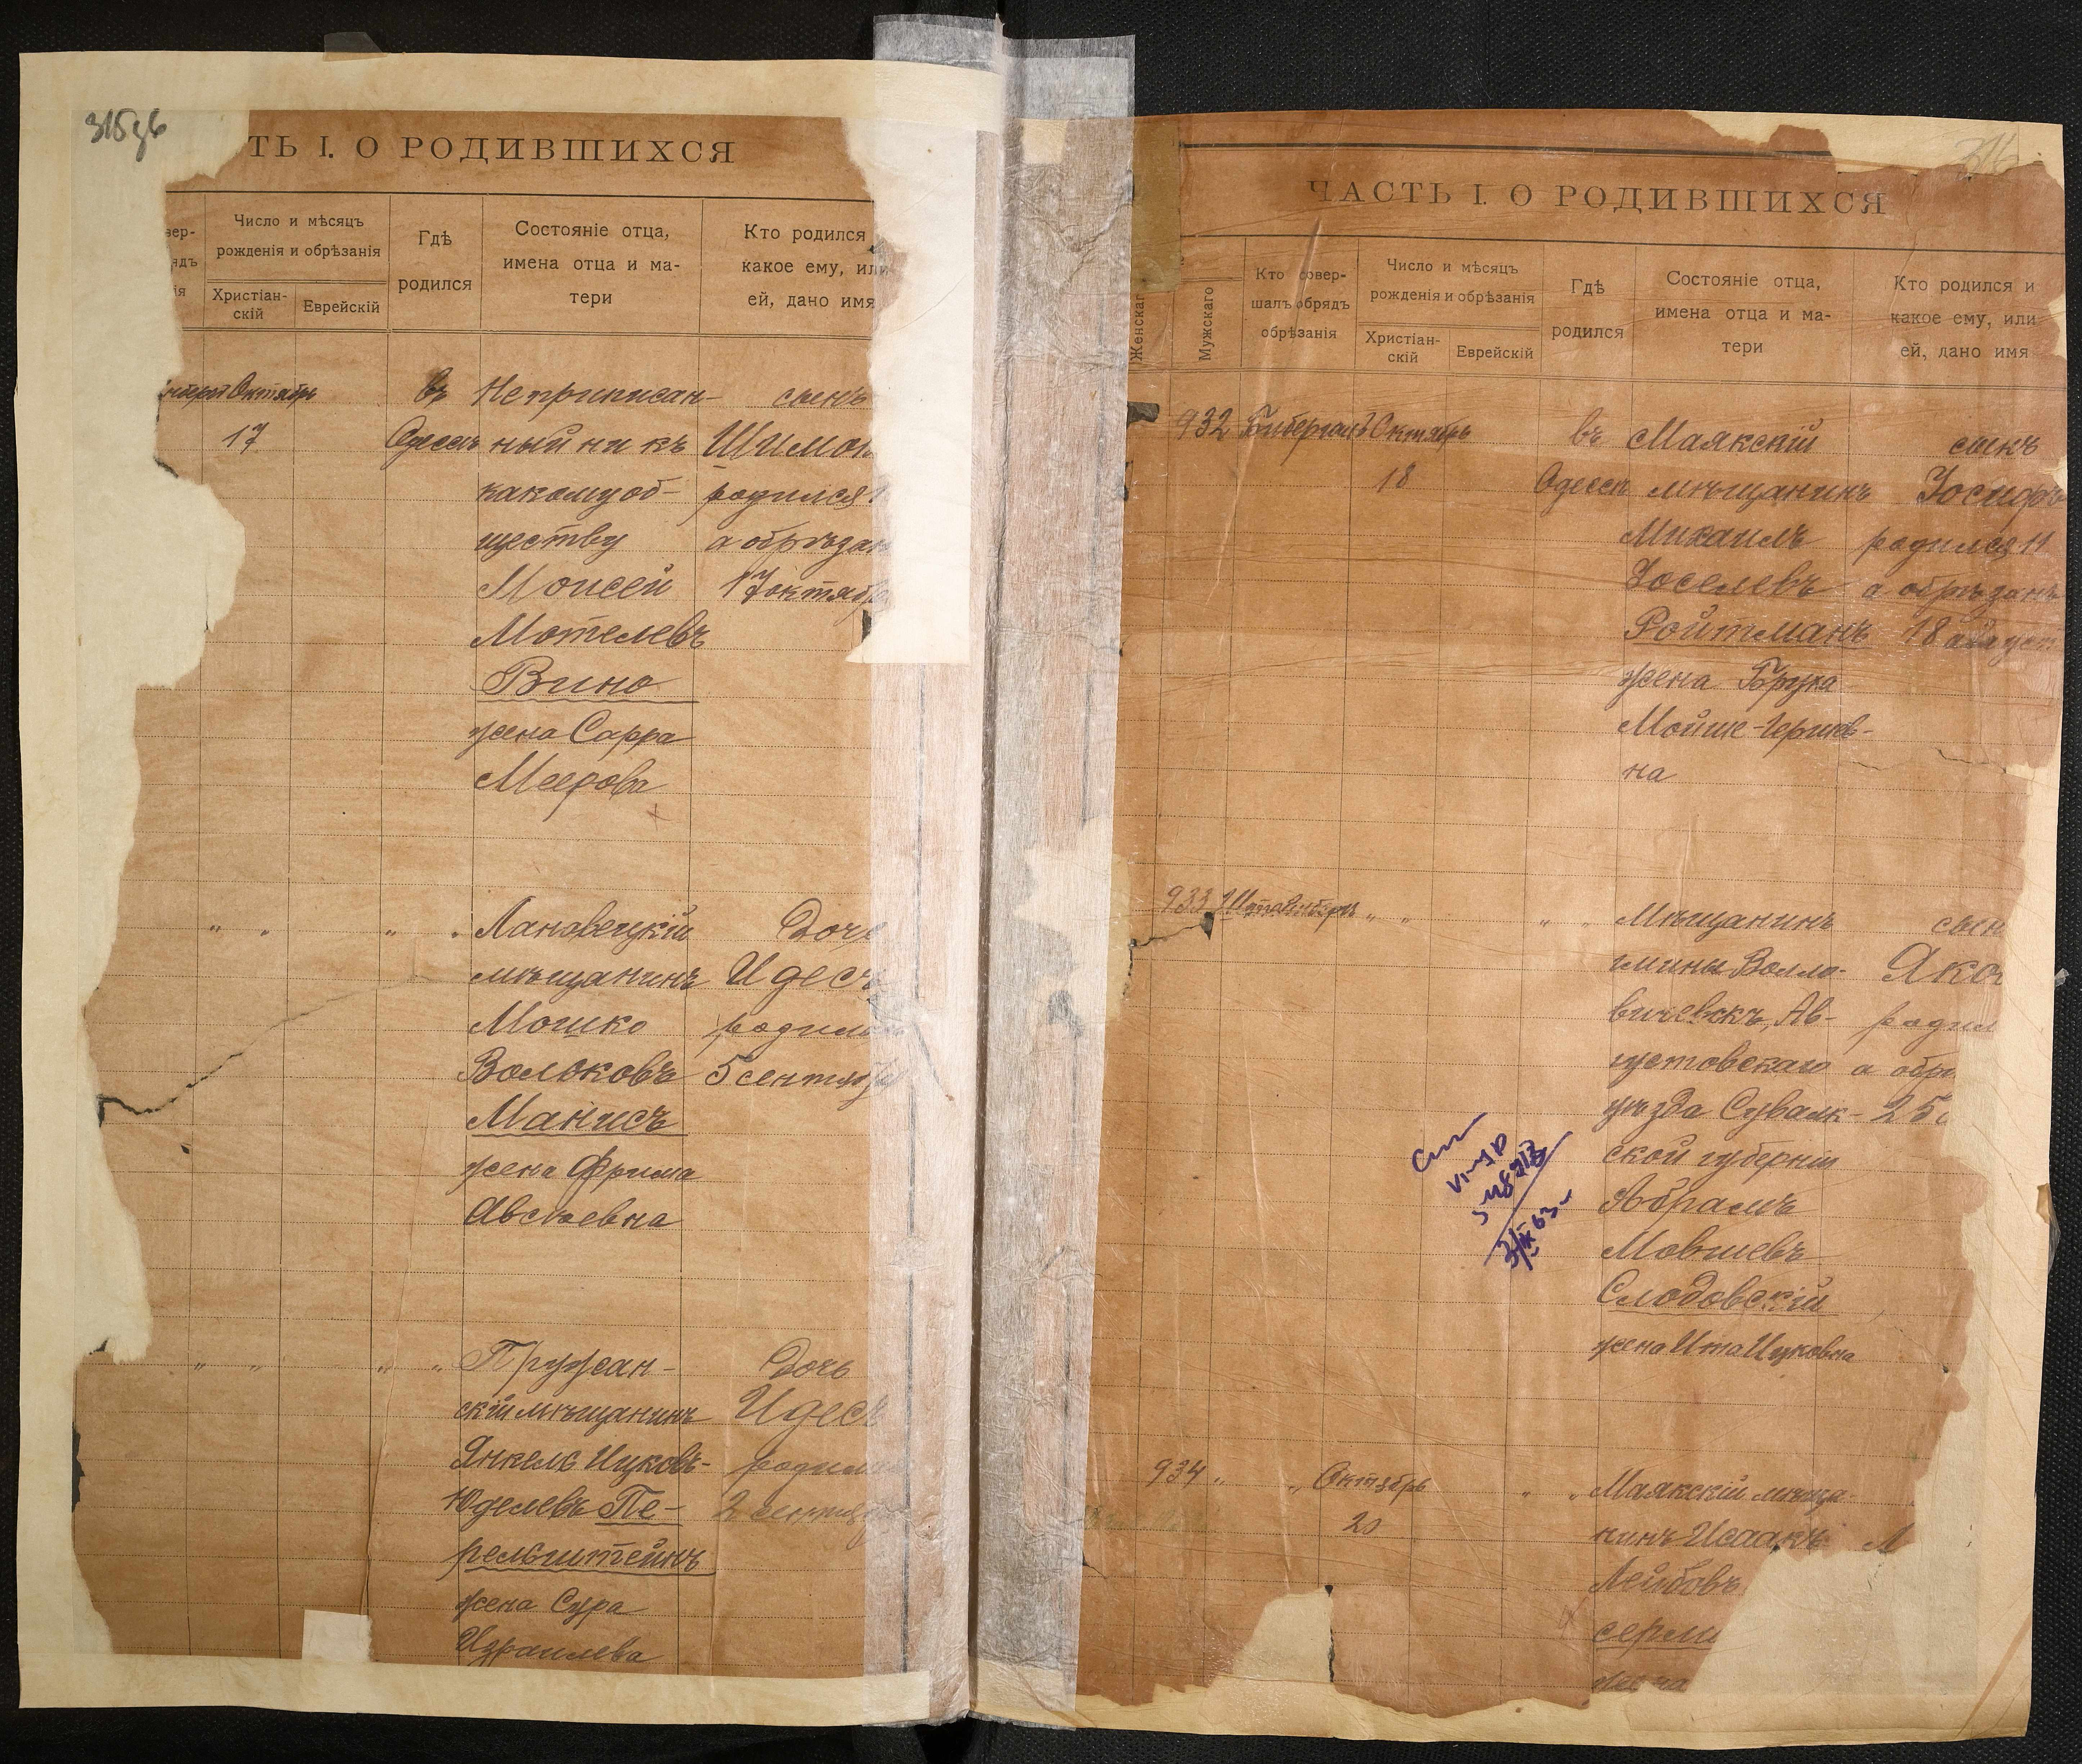 315об
ТЬ I. О РОДИВШИХСЯ
вер-
ядъ
ія
Число и мѣсяцъ
рожденія и обрѣзанія
Христіан-
скій
Еврейскій
Гдѣ
родился
Состояніе отца,
имена отца и ма-
тери
Кто родился
какое ему, или
ей, дано имя
Октябрь
17
въ
Одессѣ
Неприписан-
ный ни къ
какому об-
ществу
Моисей
Мотелевъ
Вино
жена Сарра
Меерова
сынъ
Шимон
родился
а обрѣзан
17 октябр
" "
" "
Лановецкій
мѣщанинъ
Мошко
Вольковъ
Манисъ
жена Фрима
Авсѣевна
Дочь
Идесъ
родил
5 сентябр
" "
" "
Пружан-
скій мѣщанинъ
Янкель Ицковъ-
Юделевъ Пе-
рельштейнъ
жена Сура
Израилева
Дочь
Идесъ
родил
2 сентябр
316
ЧАСТЬ I. О РОДИВШИХСЯ
Женскаг
Мужскаго
Кто совер-
шалъ обрядъ
обрѣзанія
Число и мѣсяцъ
рожденія и обрѣзанія
Христіан-
скій
Еврейскій
Гдѣ
родился
Состояніе отца,
имена отца и ма-
тери
Кто родился и
какое ему, или
ей, дано имя
932
Бибергалъ
Октябрь
18
въ
Одессѣ
Маякскій
мѣщанинъ
Михаилъ
Іоселевъ
Ройтманъ
жена Бруха
Мойше-Герцовъ-
на
сынъ
Іосифъ
родился 11
а обрѣзанъ
18 август
933
" "
" "
Мѣщанинъ
гмины Волло-
вичевскъ, Ав-
густовскаго
уѣзда Сувалк-
ской губерніи
Абрамъ
Мовшевъ
Слободскій
жена Ита Ицковна
сын
Яко
родил
а обрѣ
25
3/IX 63
934 "
" Октябрь
20
" "
Маякскій мѣща-
нинъ Исаакъ
Лейбовъ
серли
жена
М